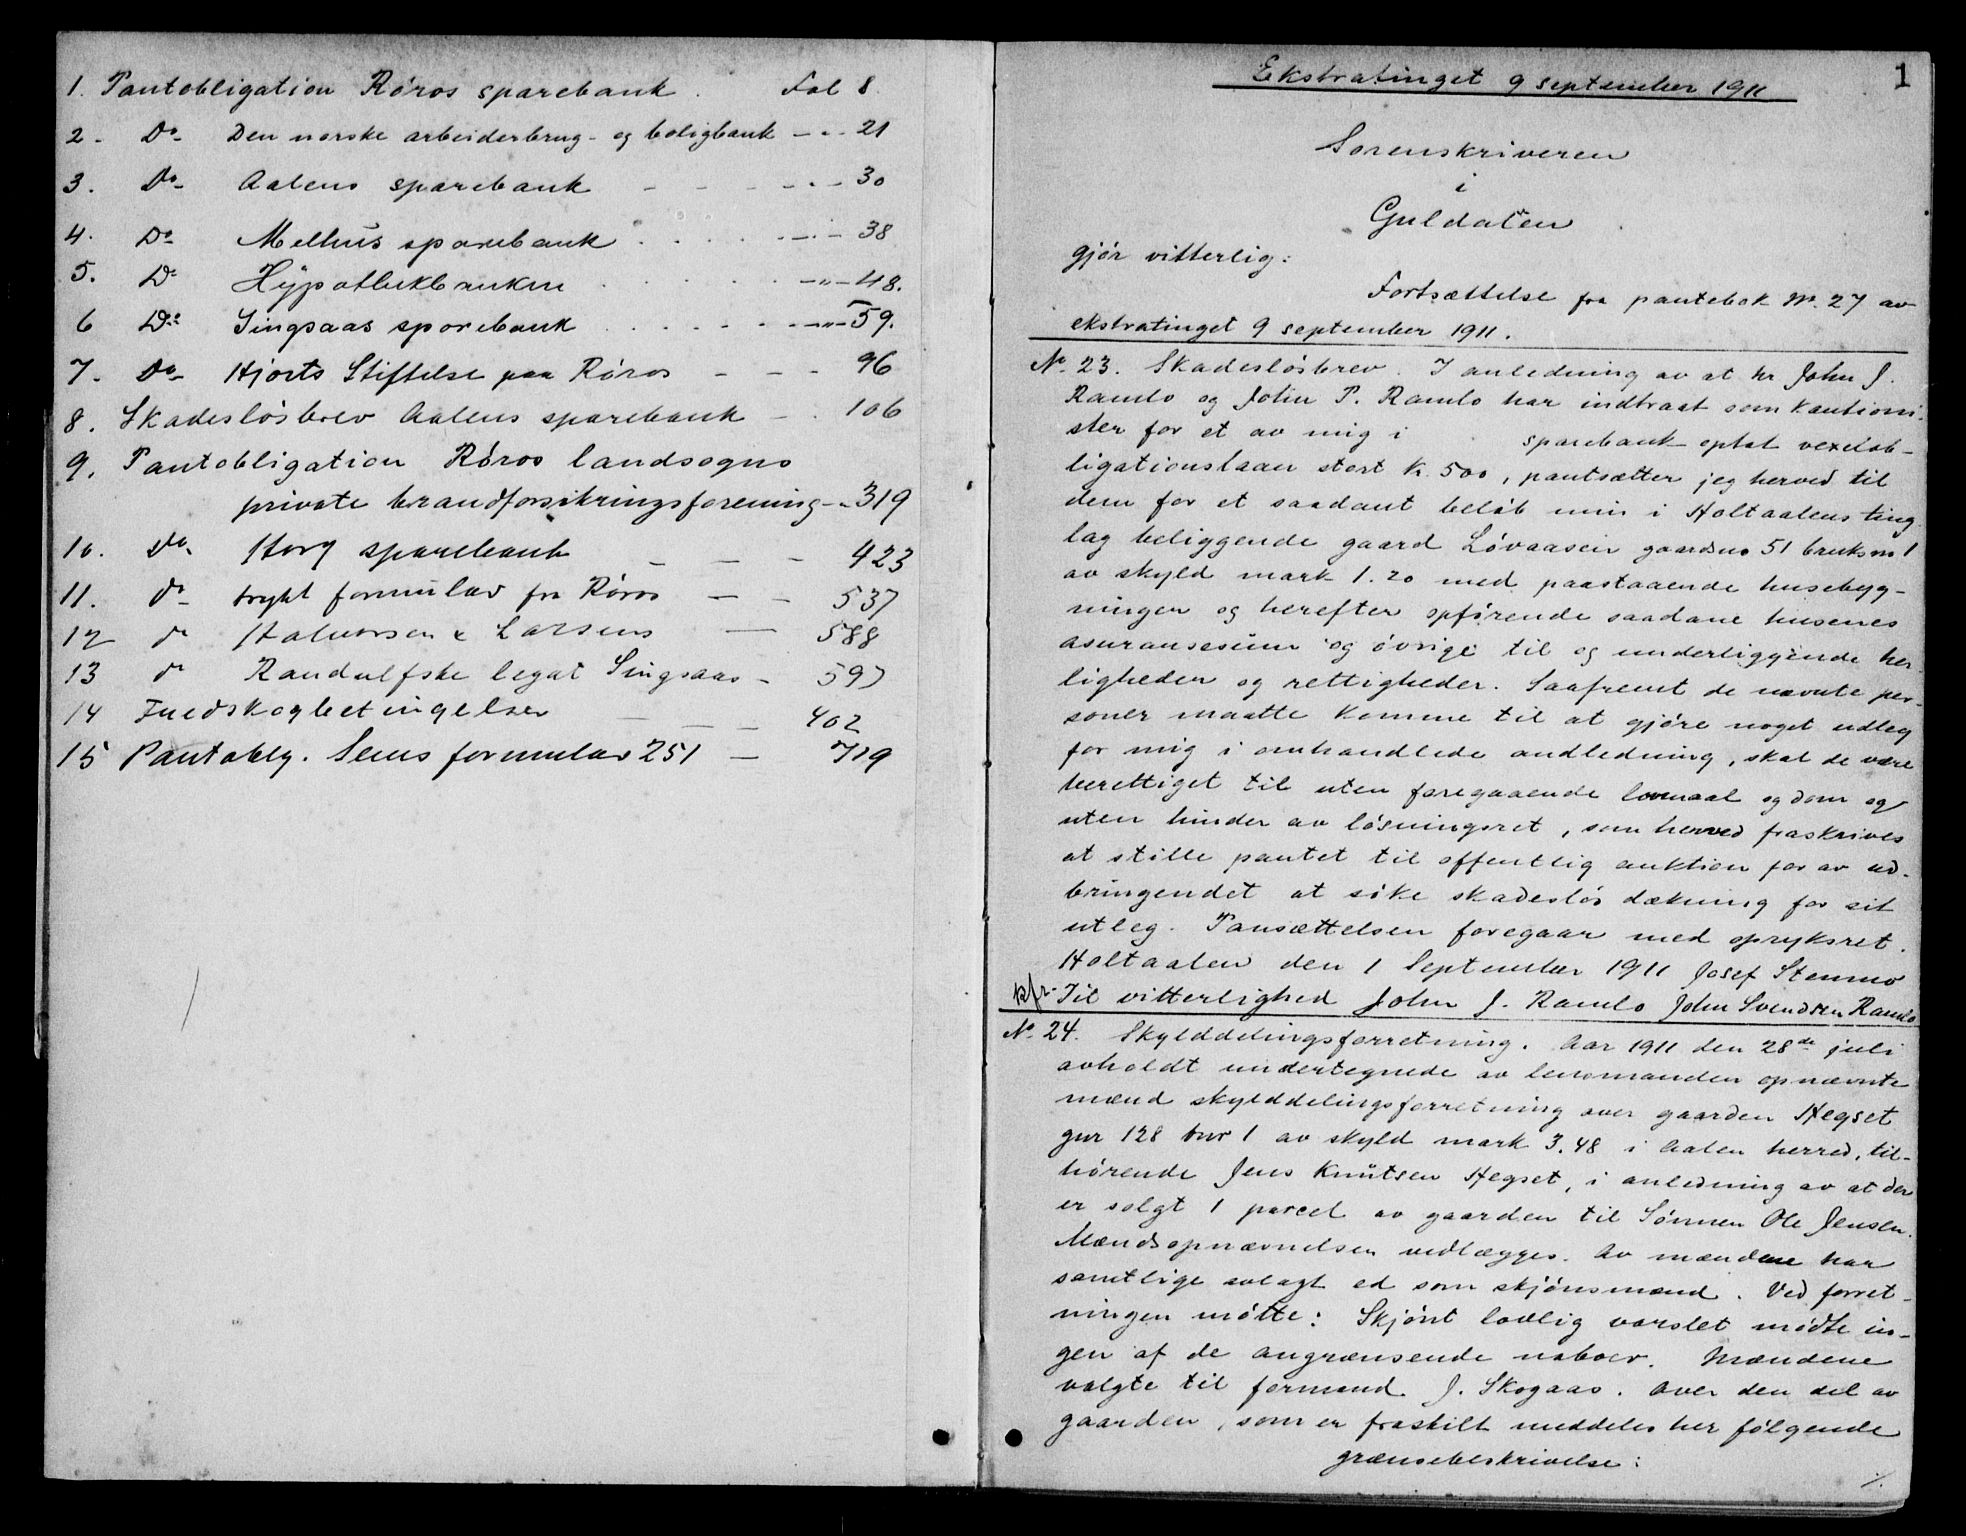 1. Pantobligation Røros sparebank . Fol 8.
2 - Do- Den norske arbeiderbrug- og boligbank - . - 21
3. Do- Aalens sparebank - - - . - 30
4. Do- Melhus sparebank . . . . - . - 38
5. Do Hypothekbanken . . . . - " - 48.
6 Do: Singsaas sparebank . . . . - " - 59.
7. Do- Hjorts Stiftelse paa Røros - - - 96
8. Skadesløsbrev Aalens sparebank - . 106
9. Pantobligation Røros landsogns
private brandforsikringsforening - . 319
10. Do. Horg sparebank - - - 423
11. do- trykt formular fra Røros - - 537
12 do Halvorsen & Larsens - 588
13 do Randulfske legat Singsaas - 597
14 Fredskogbetingelser - - - 402
15 Pantobly. Sems formular 251 - 719
1
Ekstratinget 9 september 1911
Sorenskriveren
i
Guldalen
gjør vitterlig:
Fortsættelse fra pantebok No. 27 av
ekstratinget 9 september 1911.
No. 23. Skadesløsbrev. I anledning av at hr John J.
Ramlo og John P. Ramlo har indtraat som kautioni-
ster for et av mig i sparebank optat vexelob-
ligationslaan stort kr. 500, pantsætter jeg herved til
dem for et saadant beløb min i Holtaalens ting
lag beliggende gaard Løvaasen gaardsno 51 bruksno 1
av skyld mark 1.20 med paastaaende husebyg-
ninger og herefter opførende saadane husenes
asuransesum og øvrige til og underliggende her
ligheder og rettigheder. Saafremt de nævnte per-
soner maatte komme til at gjøre noget udleg
for mig i omhandlede andledning, skal de være
berettiget til uten foregaaende lovmaal og dom og
uten hinder av løsningsret, som herved fraskrives
at stille pantet til offentlig auktion for av ud-
bringendet at søke skadesløs dækning for sit
utleg. Pansættelsen foregaar med opryksret.
Holtaalen den 1 September 1911 Josef Stenmo
kfr. Til vitterlighed John J. Ramlo John Svendsen Ramlo
No. 24. Skylddelingsforretning. Aar 1911 den 28de juli
avholdt undertegnede av lensmanden opnævnte
mænd skylddelingsforretning over gaarden Hegset
gnr 128 bnr 1 av skyld mark 3.48 i Aalen herred, til-
hørende Jens Knutsen Hegset, i anledning av at der
er solgt 1 parcel av gaarden til Sønnen Ole Jensen.
Mændsopnævnelsen vedlægges. Av mændene har
samtlige avlagt ed som skjønsmænd. Ved forret-
ningen møtte: Skjønt lovlig varslet mødte in-
gen af de angrænsende naboer. Mændene
valgte til formand J. Skogaas. Over den del av
gaarden, som er fraskilt meddeles her følgende
grænsebeskrivelse: